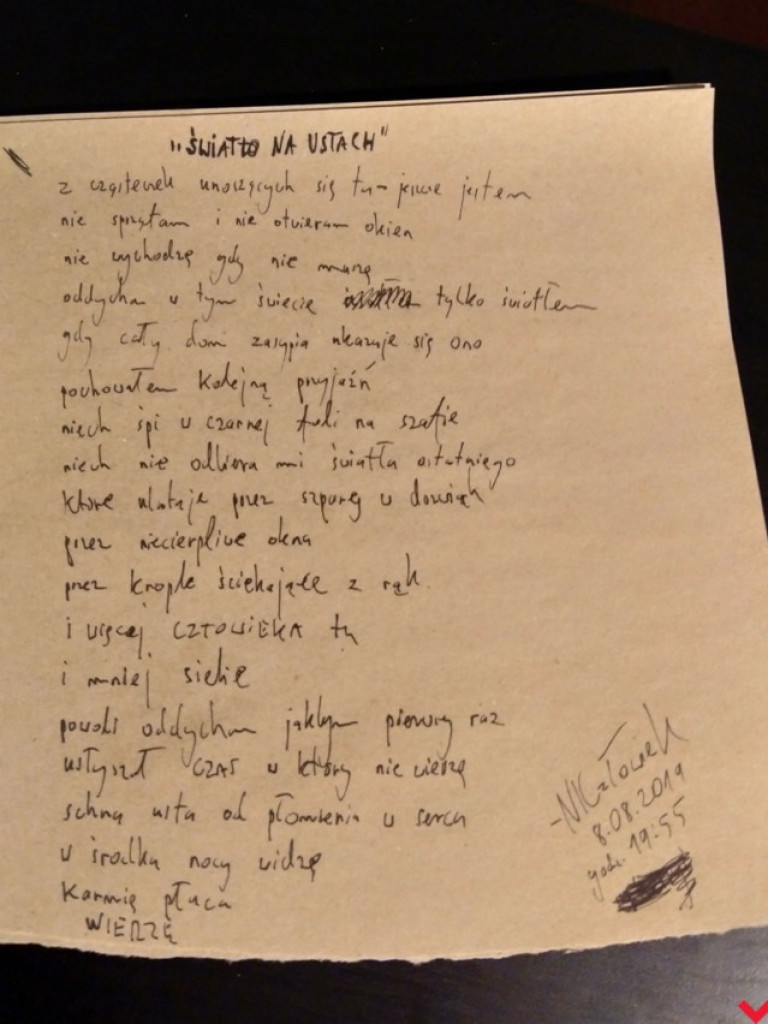 "ŚWIATŁO NA USTACH"
z cząsteczek unoszących się tu - jeszcze jestem
nie sprzątam i nie otwieram okien
nie wychodzę gdy nie muszę
oddycham w tym świecie tylko światłem
gdy cały dom zasypia ukazuje się ono
pochowałem kolejną przyjaźń
niech śpi w czarnej folii na szafie
niech nie odbiera mi światła ostatniego
które ulatuje przez szparę w drzwiach
przez niecierpliwe okna
przez krople ściekające z rąk
i więcej CZŁOWIEKA tu
i mniej siebie
powoli oddycham jakbym pierwszy raz
usłyszał CZAS w który nie wierzę
schną usta od płomienia w sercu
w środku nocy widzę
karmię płuca
WIERZĘ
8.08.2019
godz. 19:55